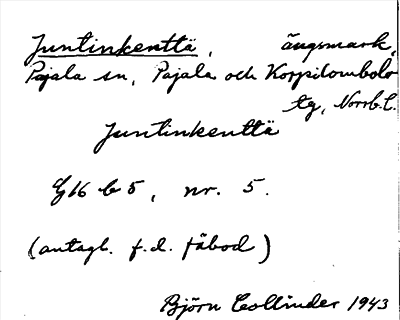 Juntinkenttä, ängsmark,
Pajala sn, Pajala och Korpilombolo
tg, Norrb.l.
Juntinkenttä
G16 b 5, nr. 5.
(antagl. f.d. fäbod)
Björn Collinder 1943